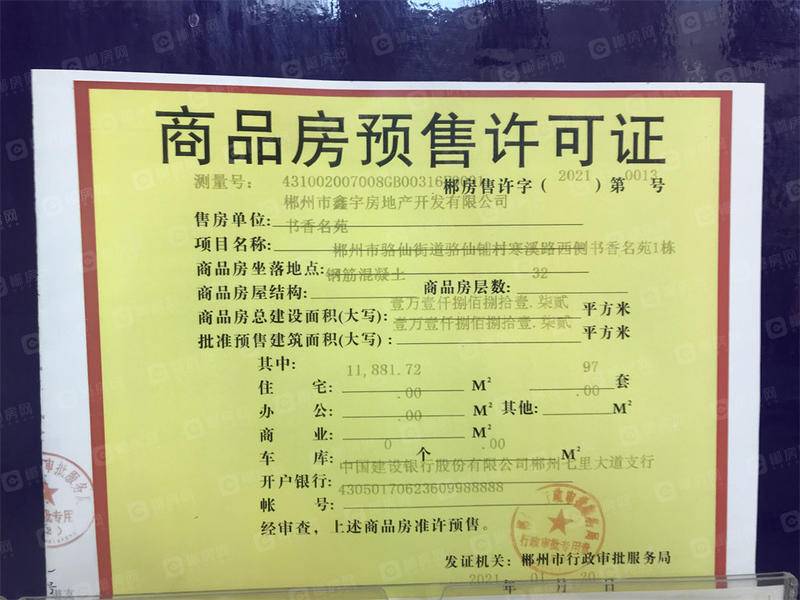 商品房预售许可证
测量号:
郴房售许字(2021)第0013号
售房单位:郴州市鑫宇房地产开发有限公司
项目名称:书香名苑
商品房坐落地点:郴州市骆仙街道骆仙铺村寒溪路西侧书香名苑1栋
商品房屋结构:钢筋混凝土 商品房层数:32
商品房总建设面积(大写):壹万壹仟捌佰捌拾壹.柒贰 平方米
批准预售建筑面积(大写):壹万壹仟捌佰捌拾壹.柒贰 平方米
其中:
住 宅:11,881.72 M² 97 套
办 公:.00 M² 其他:.00 M²
商 业:.00 M²
车 库:0 个 .00 M²
开户银行:中国建设银行股份有限公司郴州七里大道支行
帐 号:43050170623609988888
经审查,上述商品房准许预售。
发证机关:郴州市行政审批服务局
2021 年 01 月 20 日
行政审批专用章
郴房网